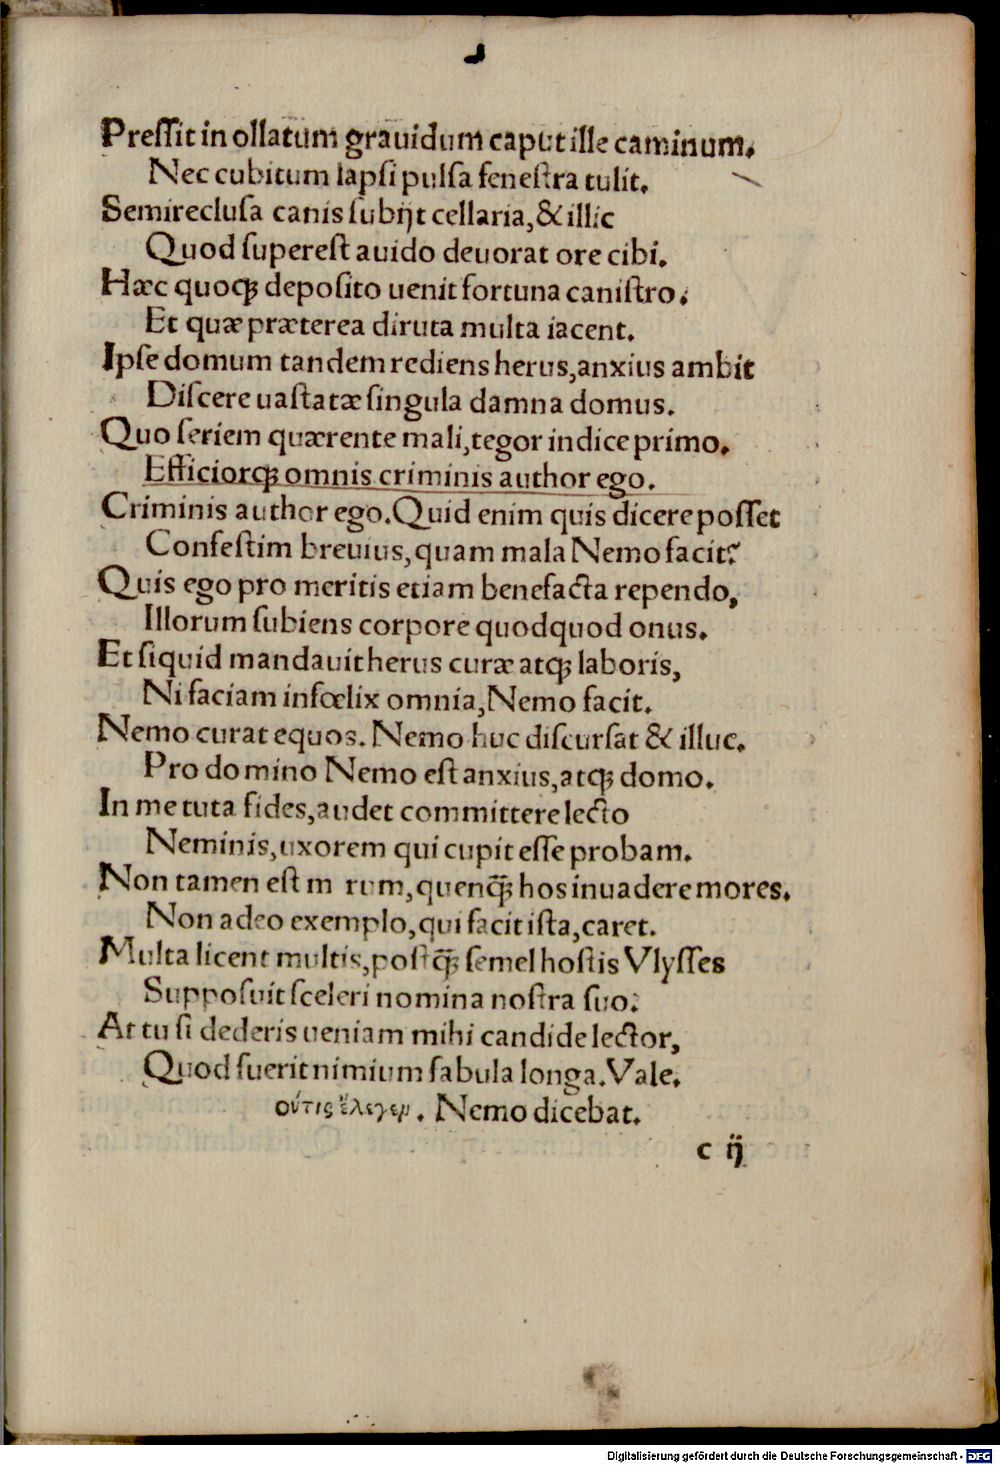 Preſſit in ollatum grauidum caput ille caminum.
Nec cubitum lapſi pulſa feneſtra tulit.
Semirecluſa canis ſubijt cellaria, & illic
Quod ſupereſt auido deuorat ore cibi.
Hæc quoqꝫ depoſito uenit fortuna caniſtro.
Et quæ præterea diruta multa iacent.
Ipſe domum tandem rediens herus, anxius ambit
Diſcere uaſtatæ ſingula damna domus.
Quo ſeriem quærente mali, tegor indice primo.
Efficiorqꝫ omnis criminis author ego.
Criminis author ego. Quid enim quis dicere poſſet
Confeſtim breuius, quam mala Nemo facit?
Quis ego pro meritis etiam benefacta rependo,
Illorum ſubiens corpore quodquod onus.
Et ſiquid mandauit herus curæ atqꝫ laboris,
Ni faciam infœlix omnia, Nemo facit.
Nemo curat equos. Nemo huc diſcurſat & illuc.
Pro domino Nemo eſt anxius, atqꝫ domo.
In me tuta fides, audet committere lecto
Neminis, uxorem qui cupit eſſe probam.
Non tamen eſt m rum, quenq̃ꝫ hos inuadere mores.
Non adeo exemplo, qui facit iſta, caret.
Multa licent multis, poſtq̃ꝫ ſemel hoſtis Vlyſſes
Suppoſuit ſceleri nomina noſtra ſuo.
At tu ſi dederis ueniam mihi candide lector,
Quod fuerit nimium fabula longa. Vale.
οὔτις ἔλεγεν. Nemo dicebat.
c ij
Digitalisierung gefördert durch die Deutsche Forschungsgemeinschaft - DFG